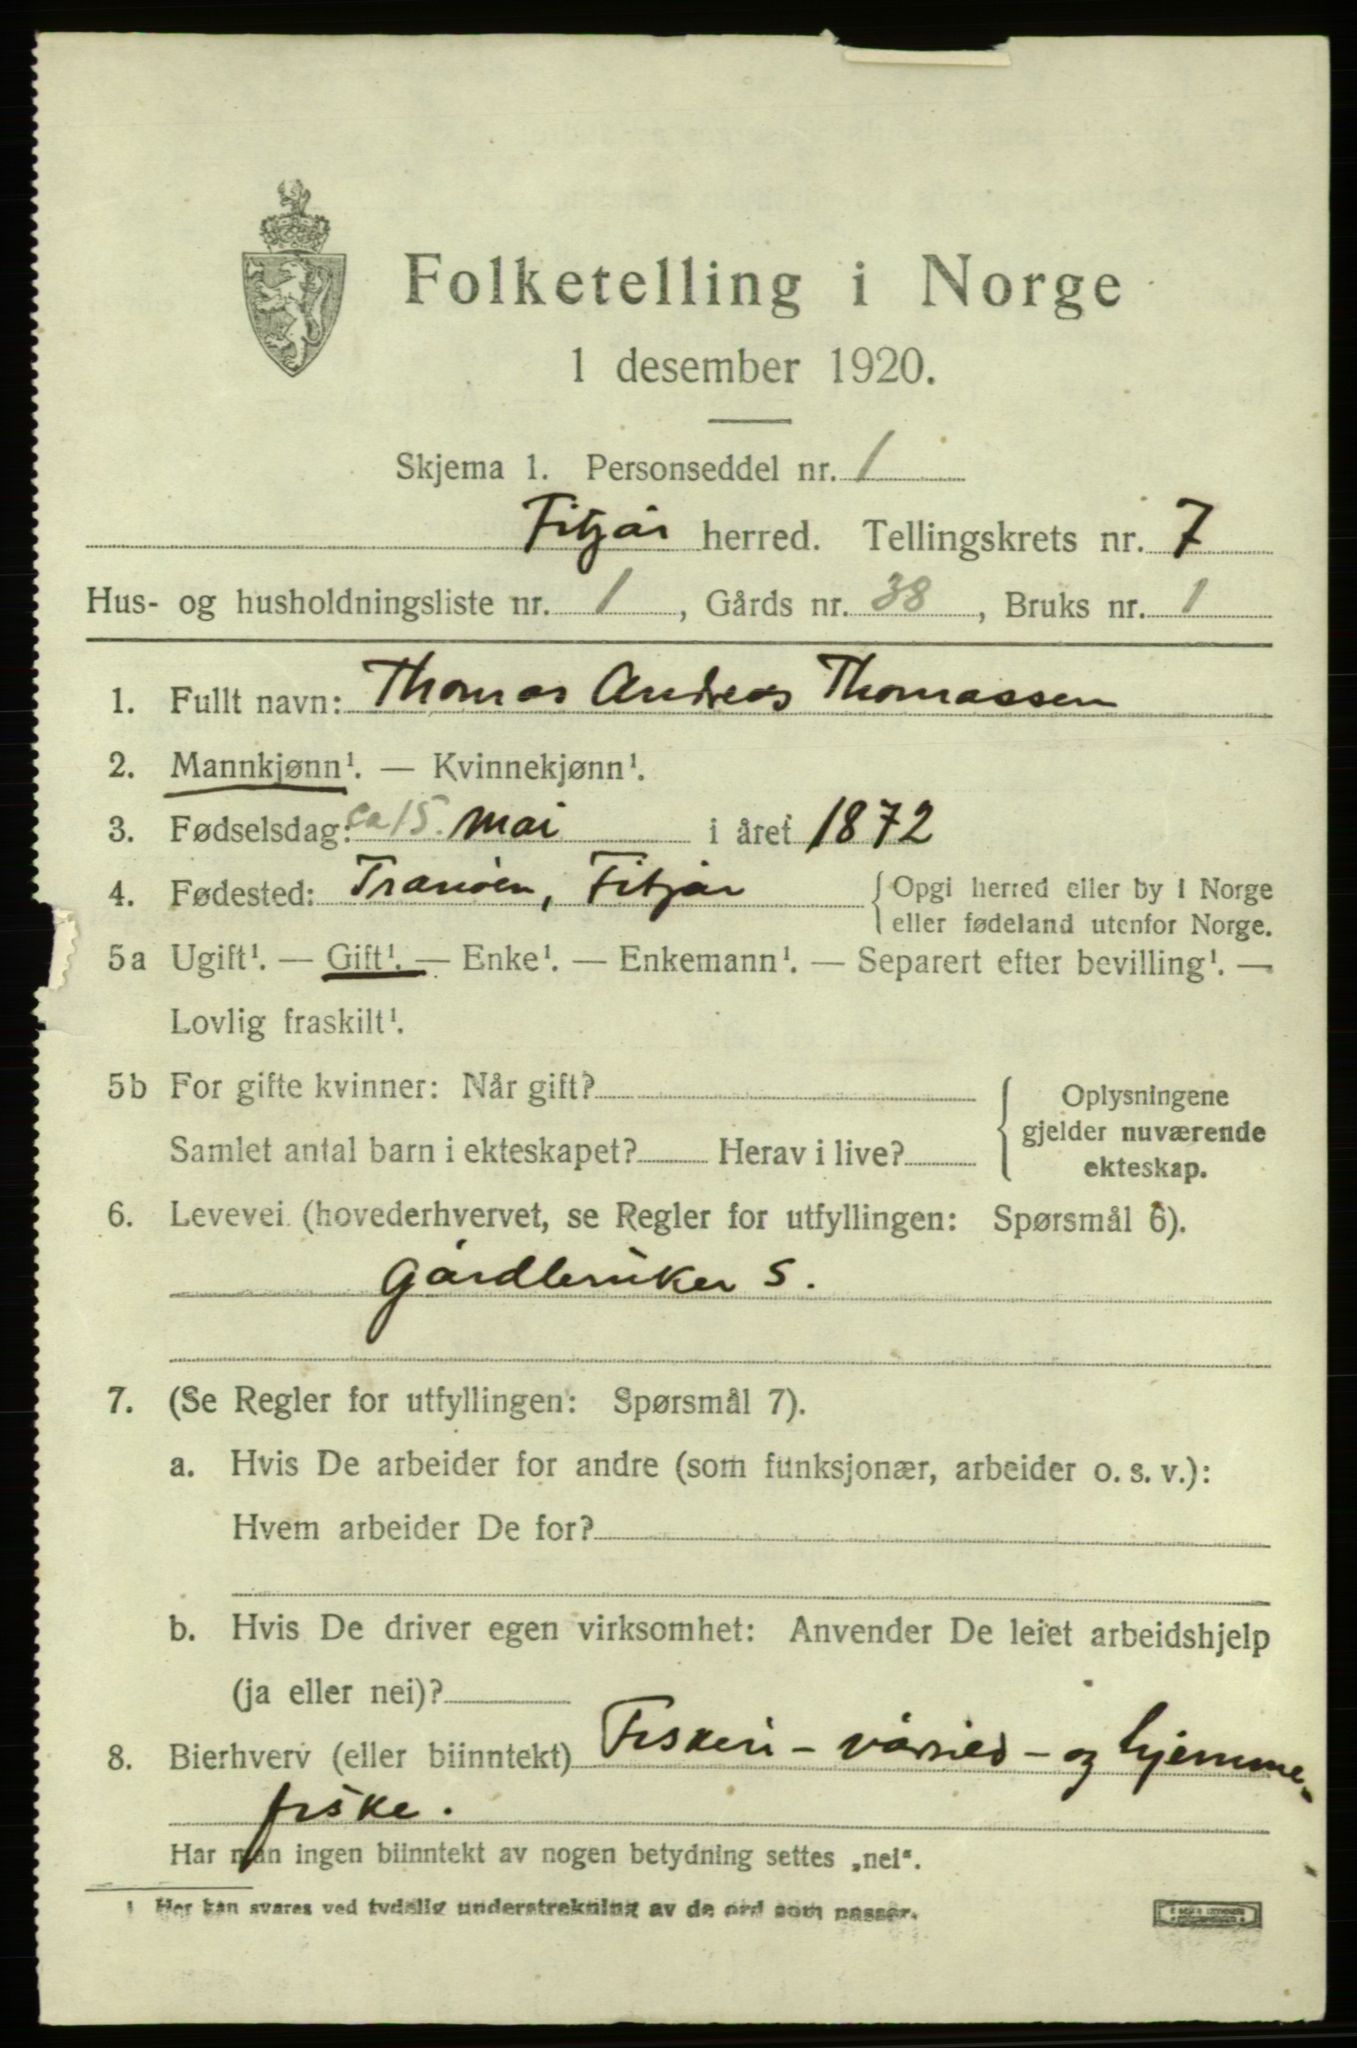 Folketelling i Norge
1 desember 1920.
Skjema 1. Personseddel nr. 1
Fitjar herred. Tellingskrets nr. 7
Hus- og husholdningsliste nr. 1, Gårds nr. 38, Bruks nr. 1
1. Fullt navn: Thomas Andreas Thomassen
2. Mannkjønn¹. — Kvinnekjønn¹.
3. Fødselsdag: ca 15. mai i året 1872
4. Fødested: Tranöen, Fitjar {Opgi herred eller by i Norge
eller fødeland utenfor Norge.
5a Ugift¹. — Gift¹. — Enke¹. — Enkemann¹. — Separert efter bevilling¹. —
Lovlig fraskilt¹.
5b For gifte kvinner: Når gift?
Samlet antal barn i ekteskapet? Herav i live?
{Oplysningene
gjelder nuværende
ekteskap.
6. Levevei (hovederhvervet, se Regler for utfyllingen: Spørsmål 6).
Gårdbruker S.
7. (Se Regler for utfyllingen: Spørsmål 7).
a. Hvis De arbeider for andre (som funksjonær, arbeider o. s. v.):
Hvem arbeider De for?
b. Hvis De driver egen virksomhet: Anvender De leiet arbeidshjelp
(ja eller nei)?
8. Bierhverv (eller biinntekt) Fiskeri - vårsild - og hjemme-
fiske.
Har man ingen biinntekt av nogen betydning settes „nei“.
¹ Her kan svares ved tydelig understrekning av de ord som passer.